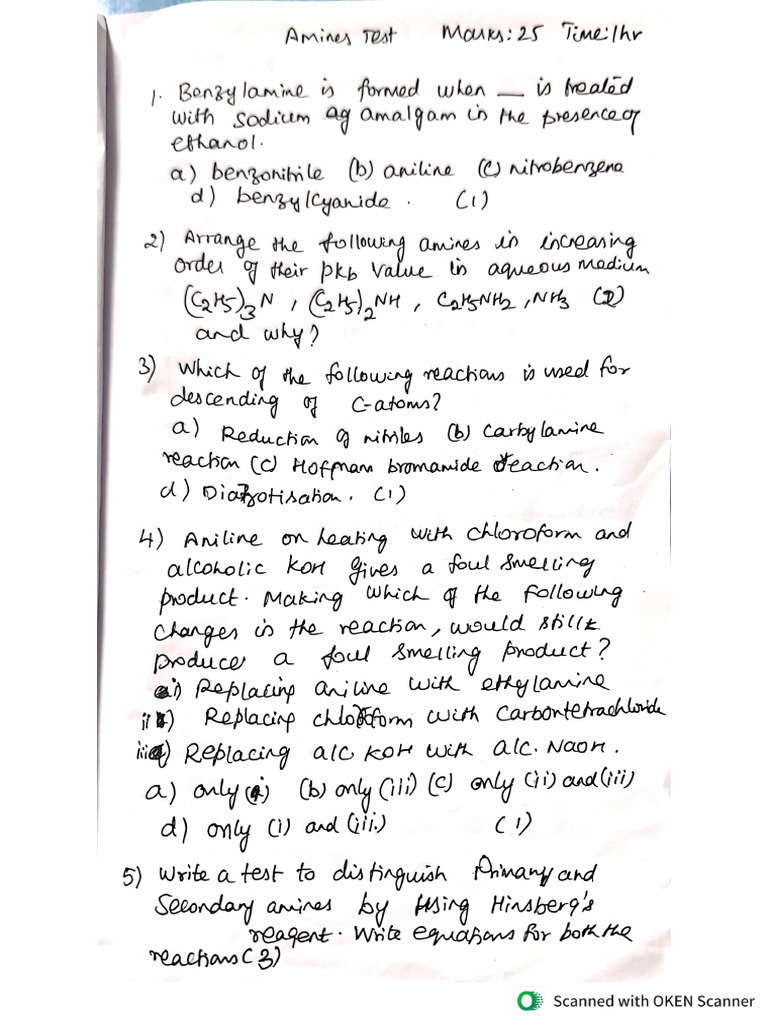 Amines Test Marks: 25 Time: 1hr
1. Benzylamine is formed when __ is treated
with sodium ag amalgam in the presence of
ethanol.
a) benzonitrile (b) aniline (c) nitrobenzene
d) benzylcyanide. (1)
2) Arrange the following amines in increasing
order of their pkb value in aqueous medium
(C2H5)3N, (C2H5)2NH, C2H5NH2, NH3 (2)
and why?
3) Which of the following reactions is used for
descending of C-atoms?
a) Reduction of nitriles (b) Carbylamine
reaction (c) Hoffmam bromamide reaction.
d) Diazotisation. (1)
4) Aniline on heating with chloroform and
alcoholic KOH gives a foul smelling
product. Making which of the following
changes in the reaction, would still
produce a foul smelling product?
i) Replacing aniline with ethylamine
ii) Replacing chloroform with carbontetrachloride
iii) Replacing alc KOH with alc. NaOH.
a) only (i) (b) only (iii) (c) only (ii) and (iii)
d) only (i) and (iii.) (1)
5) Write a test to distinguish Primary and
Secondary amines by using Hinsberg's
reagent. Write equations for both the
reactions (3)
Scanned with OKEN Scanner